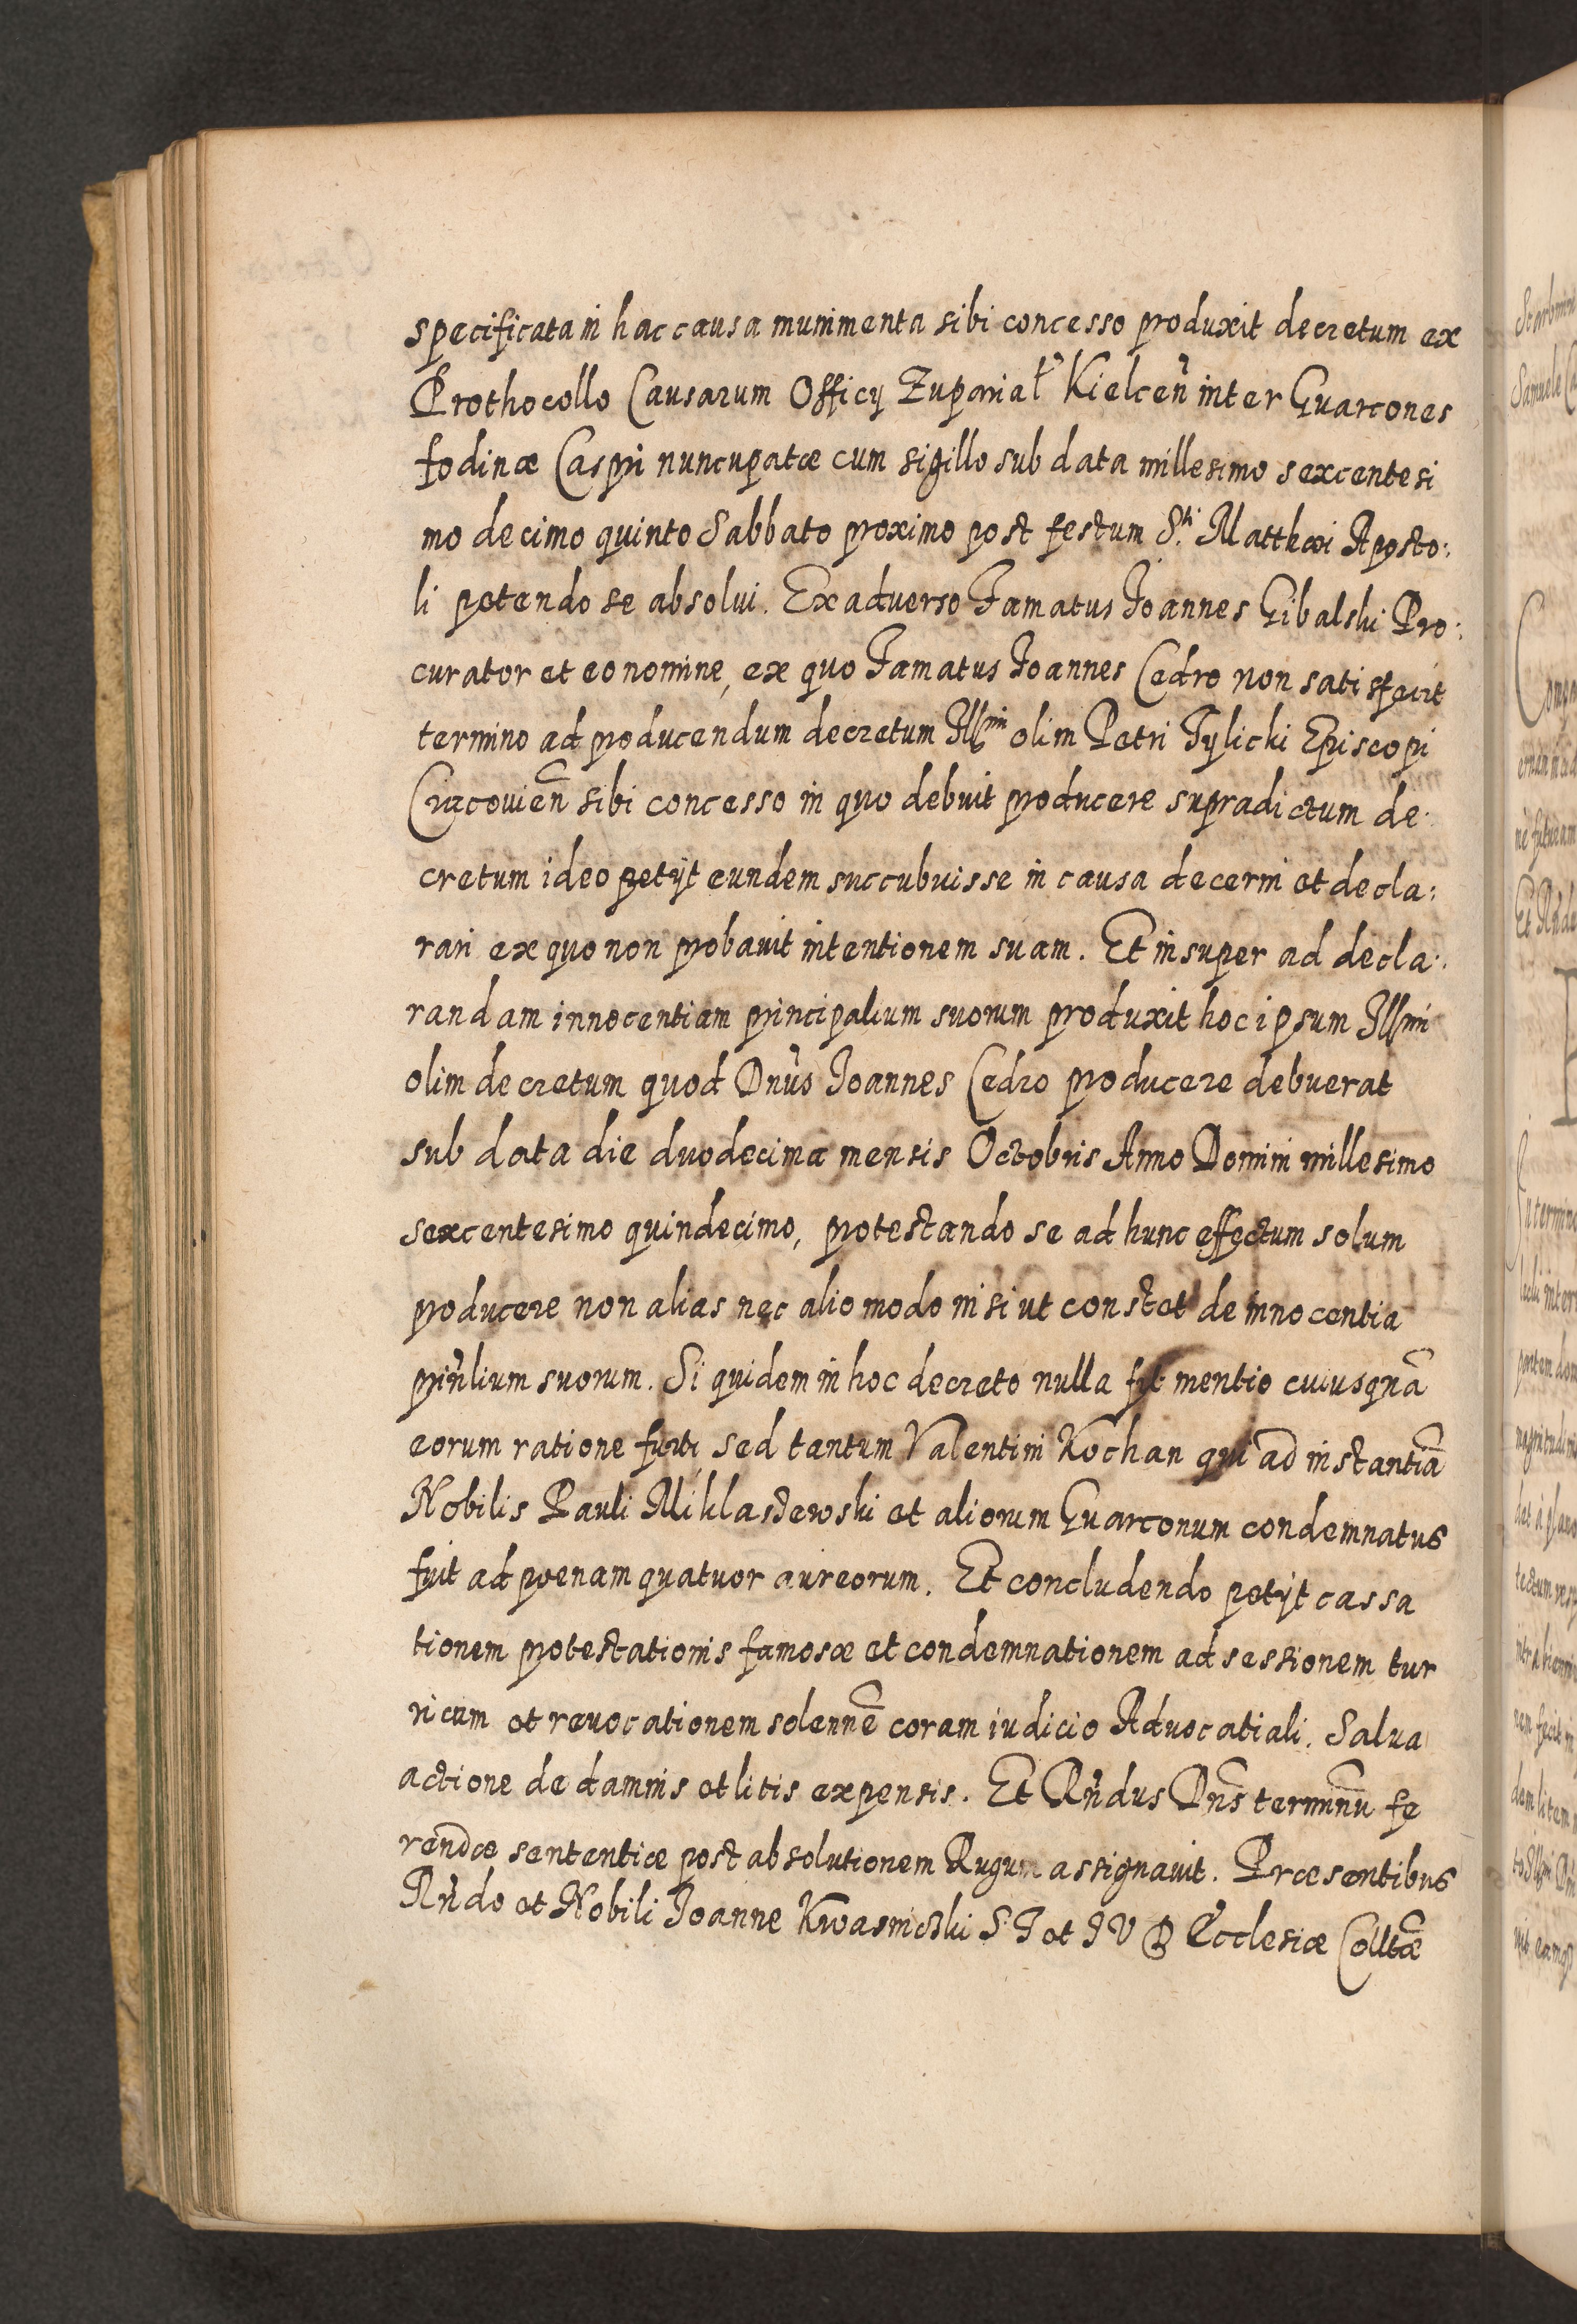 specificata in hac causa munimenta sibi concesso produxit decretum ex
Prothocollo Causarum Officij Zupariał Kielceñ inter Gvarcones
fodinæ Caspri nuncupatæ cum sigillo sub data millesimo sexcentesi
mo decimo quinto Sabbato proximo post festum S.ti Matthæi Aposto:
li petendo se absolui. Ex aduerso Famatus Joannes Gibalski Pro:
curator et eo nomine, ex quo Famatus Joannes Cedro non satisfecit
termino ad producendum decretum Illmi olim Petri Tylicki Episcopi
Cracouieñ sibi concesso in quo debuit producere supradictum de:
cretum ideo petijt eundem succubuisse in causa decerni et decla:
rari ex quo non probauit intentionem suam. Et insuper ad decla:
randam innocentiam principalium suorum produxit hoc ipsum Illmi
olim decretum quod Dnus Joannes Cedro producere debuerat
sub data die duodecima mensis Octobris Anno Domini millesimo
sexcentesimo quindecimo, protestando se ad hunc effectum solum
producere non alias nec alio modo nisi ut constet de innocentia
prinlium suorum. Si quidem in hoc decreto nulla fit mentio cuiusqnã
eorum ratione furti sed tantum Valentini Kochan qui ad instantiã
Nobilis Pauli Miklaszewski et aliorum Gvarconum condemnatus
fuit ad poenam quatuor aureorum. Et concludendo petijt cassa
tionem protestationis famosæ et condemnationem ad sessionem tur
ricam et reuocationem solennẽ coram iudicio Aduocatiali. Salua
actione de damnis et litis expensis. Et Rñdus Dñs terminũ fe
rendæ sententiæ post absolutionem Rugum assignauit. Præsentibus
Rñdo et Nobili Joanne Kwasniczki S T et J V D Ecclesiæ Colltæ